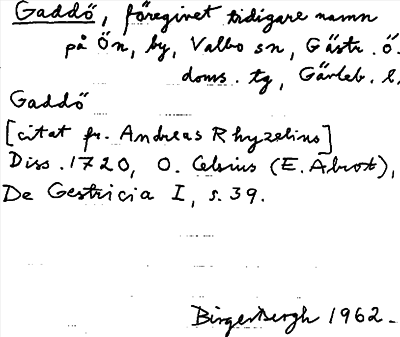 Gaddö, föregivet tidigare namn
på Ön, by, Valbo sn, Gästr. ö.
doms. tg, Gävleb. l.
Gaddö
[citat fr. Andreas Rhyzelius]
Diss. 1720, O. Celsius (E. Abrot),
De Gestricia I, s. 39.
Birger Bergh 1962.